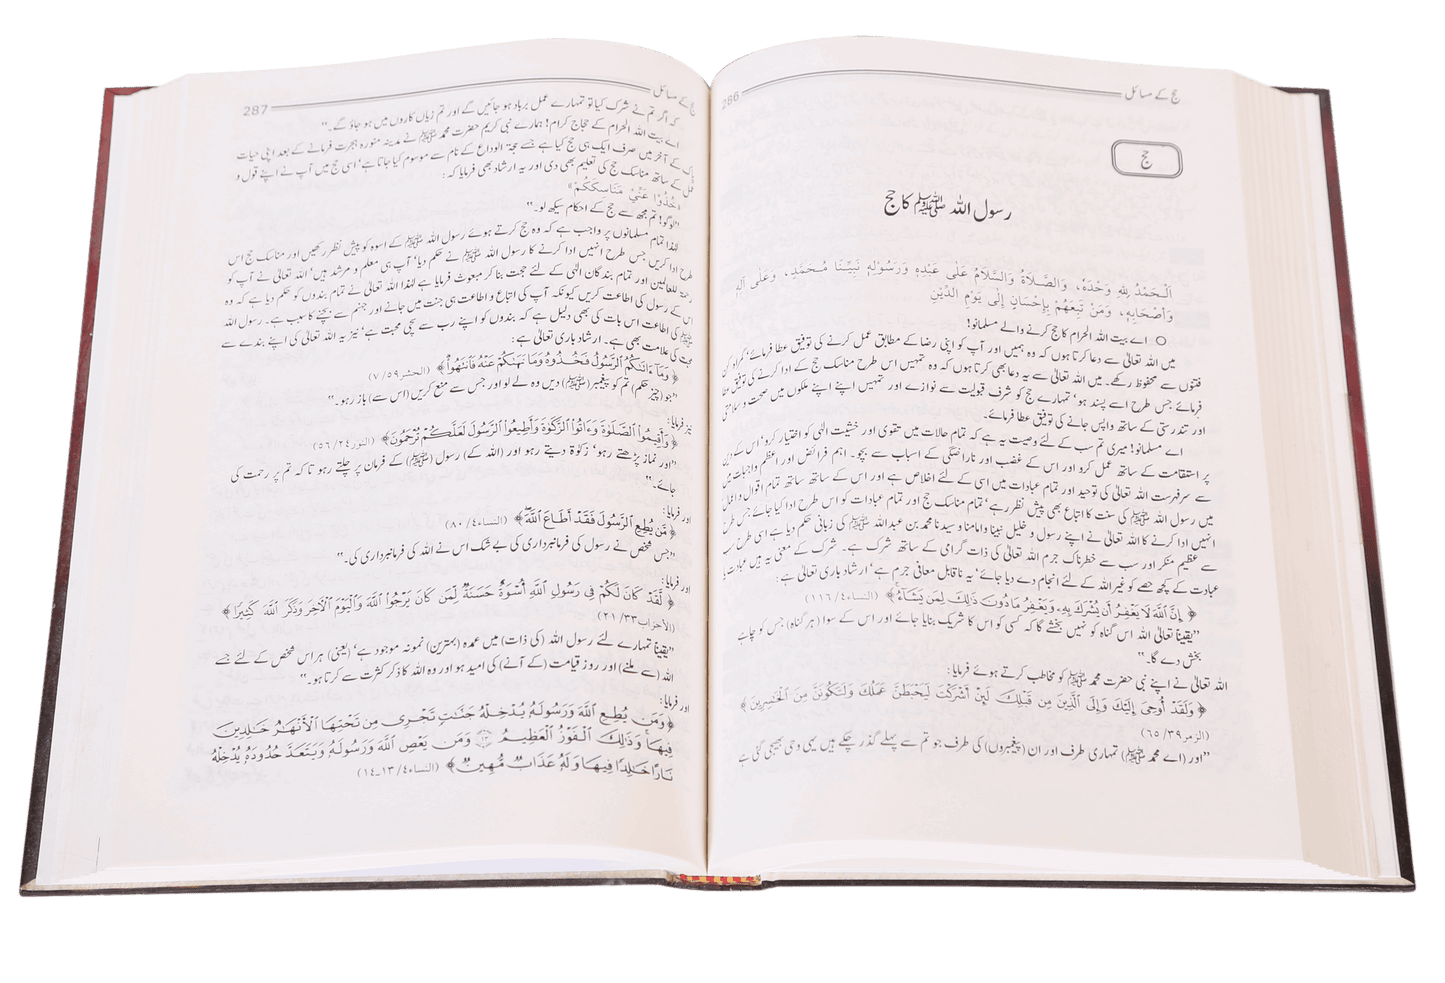 حج کے مسائل 286
حج
رسول اللہ ﷺ کا حج
اَلْحَمْدُ لِلّٰهِ وَحْدَهُ، وَالصَّلَاةُ وَالسَّلَامُ عَلَى عَبْدِهِ وَرَسُولِهِ نَبِيِّنَا مُحَمَّدٍ، وَعَلَى آلِهِ
وَأَصْحَابِهِ، وَمَنْ تَبِعَهُمْ بِإِحْسَانٍ إِلَى يَوْمِ الدِّيْنِ
○ اے بیت اللہ الحرام کا حج کرنے والے مسلمانو!
میں اللہ تعالیٰ سے دعا کرتا ہوں کہ وہ ہمیں اور آپ کو اپنی رضا کے مطابق عمل کرنے کی توفیق عطا فرمائے‘ گمراہ کن
فتنوں سے محفوظ رکھے۔ میں اللہ تعالیٰ سے یہ دعا بھی کرتا ہوں کہ وہ تمہیں اس طرح مناسک حج کے ادا کرنے کی توفیق عطا
فرمائے جس طرح اسے پسند ہو‘ تمہارے حج کو شرف قبولیت سے نوازے اور تمہیں اپنے اپنے ملکوں میں صحت و سلامتی
اور تندرستی کے ساتھ واپس جانے کی توفیق عطا فرمائے۔
اے مسلمانو! میری تم سب کے لئے وصیت یہ ہے کہ تمام حالات میں تقویٰ اور خشیت الٰہی کو اختیار کرو‘ اس کے دین
پر استقامت کے ساتھ عمل کرو اور اس کے غضب اور ناراضگی کے اسباب سے بچو۔ اہم فرائض اور اعظم واجبات میں
سے سرفہرست اللہ تعالیٰ کی توحید اور تمام عبادات میں اسی کے لئے اخلاص ہے اور اس کے ساتھ ساتھ تمام اقوال و افعال
میں رسول اللہ ﷺ کی سنت کا اتباع بھی پیش نظر رہے‘ تمام مناسک حج اور تمام عبادات کو اس طرح ادا کیا جائے جس طرح
انہیں ادا کرنے کا اللہ تعالیٰ نے اپنے رسول و خلیل نبینا و امامنا و سیدنا محمد بن عبداللہ ﷺ کی زبانی حکم دیا ہے اسی طرح سب
سے عظیم منکر اور سب سے خطرناک جرم اللہ تعالیٰ کی ذات گرامی کے ساتھ شرک ہے۔ شرک کے معنی یہ ہیں عبادت یا
عبادت کے کچھ حصے کو غیر اللہ کے لئے انجام دے دیا جائے‘ یہ ناقابل معافی جرم ہے‘ ارشاد باری تعالیٰ ہے:
﴿إِنَّ ٱللَّهَ لَا يَغْفِرُ أَن يُشْرَكَ بِهِۦ وَيَغْفِرُ مَا دُونَ ذَٰلِكَ لِمَن يَشَآءُ﴾ (النساء ٤/١١٦)
”یقیناً تعالیٰ اللہ اس گناہ کو نہیں بخشے گا کہ کسی کو اس کا شریک بنایا جائے اور اس کے سوا (ہر گناہ) جس کو چاہے
بخش دے گا۔“
اللہ تعالیٰ نے اپنے نبی حضرت محمد ﷺ کو مخاطب کرتے ہوئے فرمایا:
﴿وَلَقَدْ أُوحِيَ إِلَيْكَ وَإِلَى ٱلَّذِينَ مِن قَبْلِكَ لَئِنْ أَشْرَكْتَ لَيَحْبَطَنَّ عَمَلُكَ وَلَتَكُونَنَّ مِنَ ٱلْخَٰسِرِينَ﴾
(الزمر ٣٩/٦٥)
”اور (اے محمد ﷺ) تمہاری طرف اور ان (پیغمبروں) کی طرف جو تم سے پہلے گذر چکے ہیں یہی وحی بھیجی گئی ہے
حج کے مسائل 287
کہ اگر تم نے شرک کیا تو تمہارے عمل برباد ہو جائیں گے اور تم زیاں کاروں میں ہو جاؤ گے۔“
اے بیت اللہ الحرام کے حجاج کرام! ہمارے نبی کریم حضرت محمد ﷺ نے مدینہ منورہ ہجرت فرمانے کے بعد اپنی حیات
پاک کے آخر میں صرف ایک ہی حج کیا ہے جسے حجۃ الوداع کے نام سے موسوم کیا جاتا ہے‘ اسی حج میں آپ نے اپنے قول و
عمل کے ساتھ مناسک حج کی تعلیم بھی دی اور یہ ارشاد بھی فرمایا کہ:
«خُذُوْا عَنِّيْ مَنَاسِكَكُمْ»
”لوگو! تم مجھ سے حج کے احکام سیکھ لو۔“
لہٰذا تمام مسلمانوں پر واجب ہے کہ وہ حج کرتے ہوئے رسول اللہ ﷺ کے اسوہ کو پیش نظر رکھیں اور مناسک حج اس
طرح ادا کریں جس طرح انہیں ادا کرنے کا رسول اللہ ﷺ نے حکم دیا‘ آپ ہی معلم و مرشد ہیں‘ اللہ تعالیٰ نے آپ کو
رحمۃ للعالمین اور تمام بندگان الٰہی کے لئے حجت بنا کر مبعوث فرمایا ہے لہٰذا اللہ تعالیٰ نے تمام بندوں کو حکم دیا ہے کہ وہ
اس کے رسول کی اطاعت کریں کیونکہ آپ کی اتباع و اطاعت ہی جنت میں جانے اور جہنم سے بچنے کا سبب ہے۔ رسول اللہ
ﷺ کی اطاعت اس بات کی بھی دلیل ہے کہ بندوں کو اپنے رب سے سچی محبت ہے‘ نیز یہ اللہ تعالیٰ کی اپنے بندے سے
محبت کی علامت بھی ہے۔ ارشاد باری تعالیٰ ہے:
﴿وَمَآ ءَاتَىٰكُمُ ٱلرَّسُولُ فَخُذُوهُ وَمَا نَهَىٰكُمْ عَنْهُ فَٱنتَهُوا۟﴾ (الحشر ٥٩/٧)
”جو (چیز حکم) تم کو پیغمبر (ﷺ) دیں وہ لے لو اور جس سے منع کریں (اس سے) باز رہو۔“
نیز فرمایا:
﴿وَأَقِيمُوا۟ ٱلصَّلَوٰةَ وَءَاتُوا۟ ٱلزَّكَوٰةَ وَأَطِيعُوا۟ ٱلرَّسُولَ لَعَلَّكُمْ تُرْحَمُونَ﴾ (النور ٢٤/٥٦)
”اور نماز پڑھتے رہو‘ زکوٰۃ دیتے رہو اور (اللہ کے) رسول (ﷺ) کے فرمان پر چلتے رہو تاکہ تم پر رحمت کی
جائے۔“
اور فرمایا:
﴿مَّن يُطِعِ ٱلرَّسُولَ فَقَدْ أَطَاعَ ٱللَّهَ﴾ (النساء ٤/٨٠)
”جس شخص نے رسول کی فرمانبرداری کی بے شک اس نے اللہ کی فرمانبرداری کی۔“
اور فرمایا:
﴿لَّقَدْ كَانَ لَكُمْ فِى رَسُولِ ٱللَّهِ أُسْوَةٌ حَسَنَةٌ لِّمَن كَانَ يَرْجُوا۟ ٱللَّهَ وَٱلْيَوْمَ ٱلْءَاخِرَ وَذَكَرَ ٱللَّهَ كَثِيرًا﴾
(الأحزاب ٣٣/٢١)
”یقیناً تمہارے لئے رسول اللہ (کی ذات) میں عمدہ (بہترین) نمونہ موجود ہے‘ (یعنی) ہر اس شخص کے لئے جسے
اللہ (سے ملنے) اور روز قیامت (کے آنے) کی امید ہو اور وہ اللہ کا ذکر کثرت سے کرتا ہو۔“
اور فرمایا:
﴿وَمَن يُطِعِ ٱللَّهَ وَرَسُولَهُۥ يُدْخِلْهُ جَنَّٰتٍ تَجْرِى مِن تَحْتِهَا ٱلْأَنْهَٰرُ خَٰلِدِينَ
فِيهَا وَذَٰلِكَ ٱلْفَوْزُ ٱلْعَظِيمُ ۝١٣ وَمَن يَعْصِ ٱللَّهَ وَرَسُولَهُۥ وَيَتَعَدَّ حُدُودَهُۥ يُدْخِلْهُ
نَارًا خَٰلِدًا فِيهَا وَلَهُۥ عَذَابٌ مُّهِينٌ﴾ (النساء ٤/١٣۔١٤)